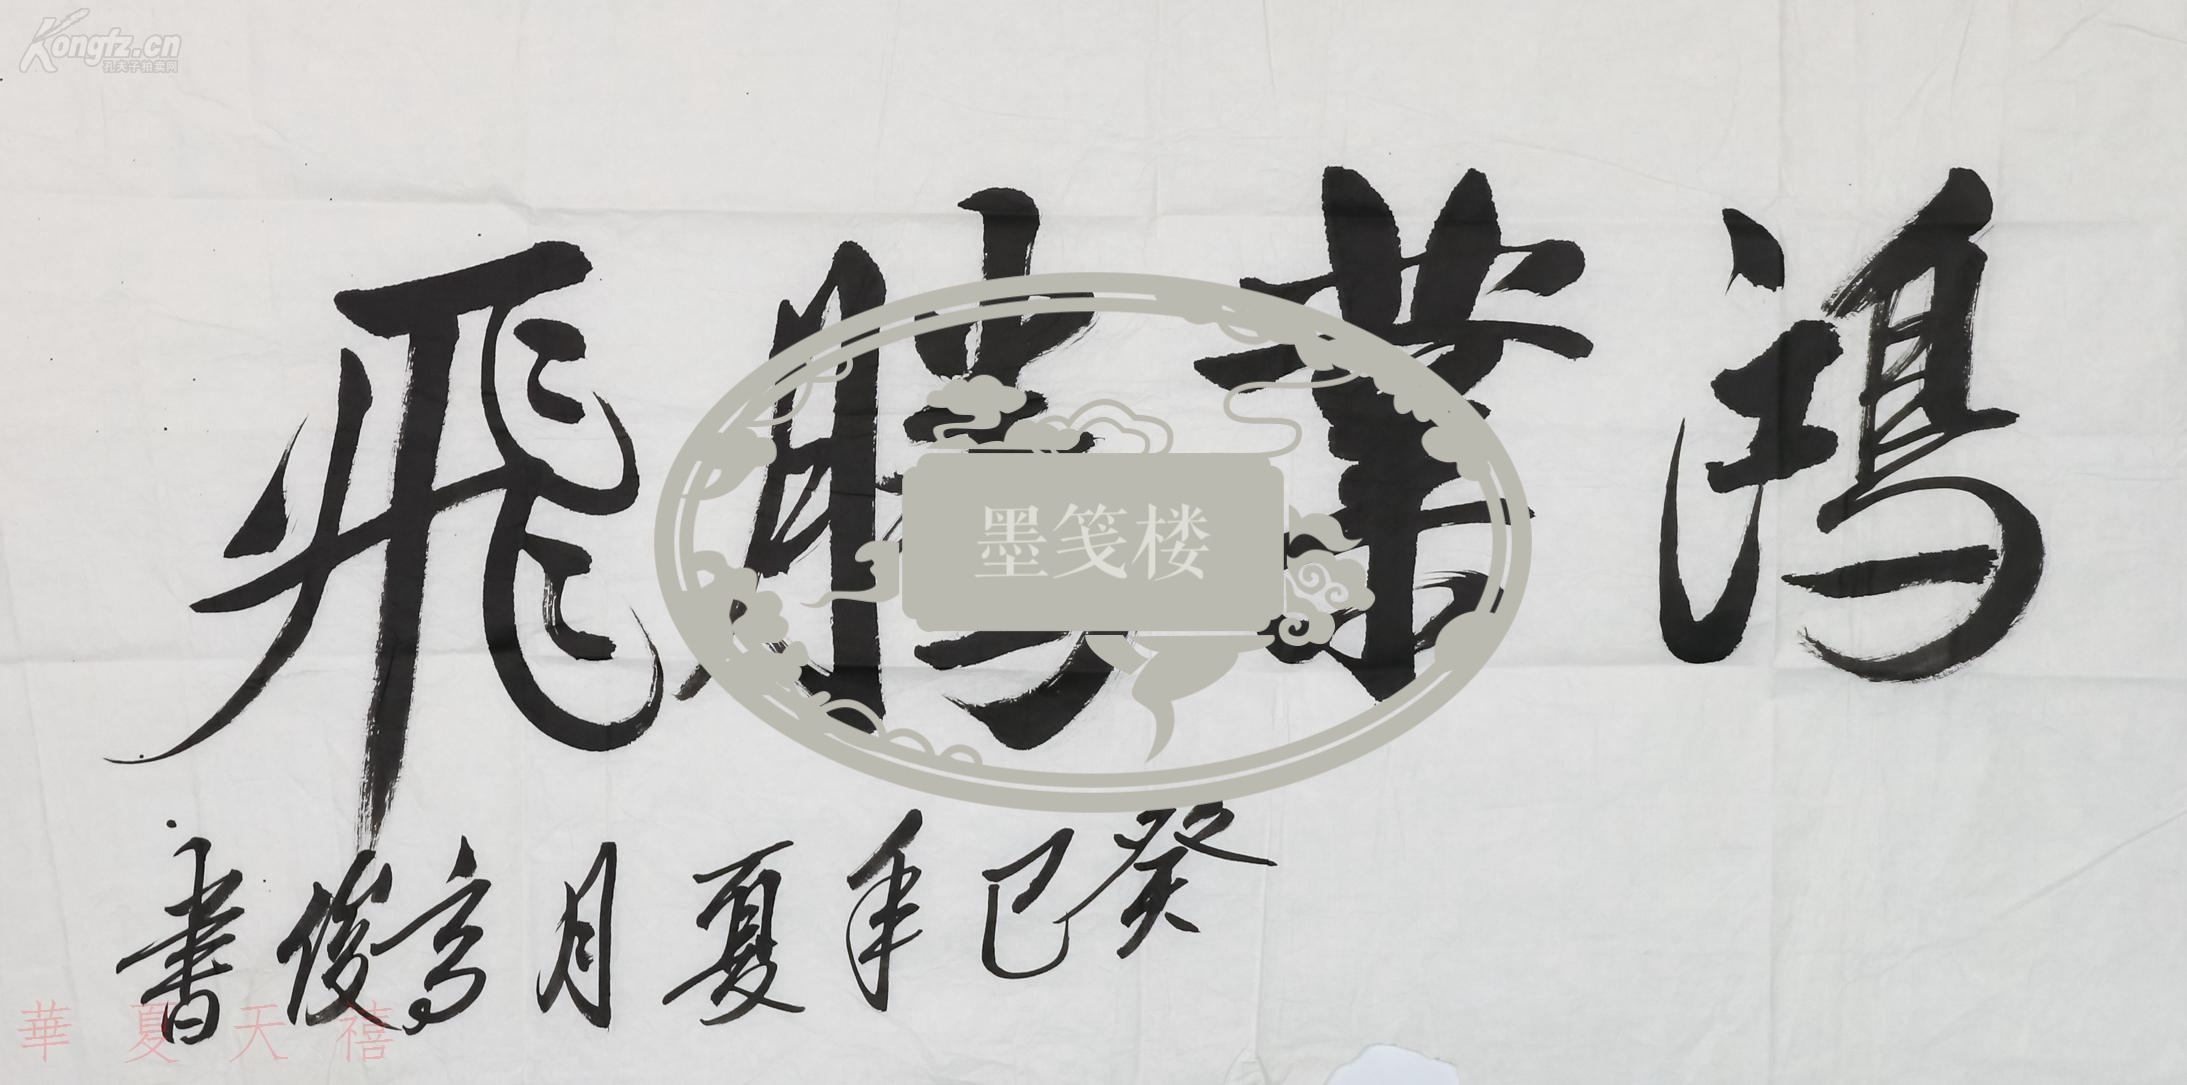 Kongfz.cn
孔夫子拍卖网
鴻業騰飛
墨笺楼
癸巳年夏月高俊書
華夏天禧